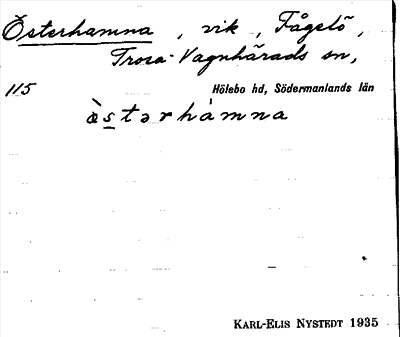 Österhamna, vik, Fågelö,
Trosa-Vagnhärads sn,
115 Hölebo hd, Södermanlands län
ö̀stərhàmna
KARL-ELIS NYSTEDT 1935